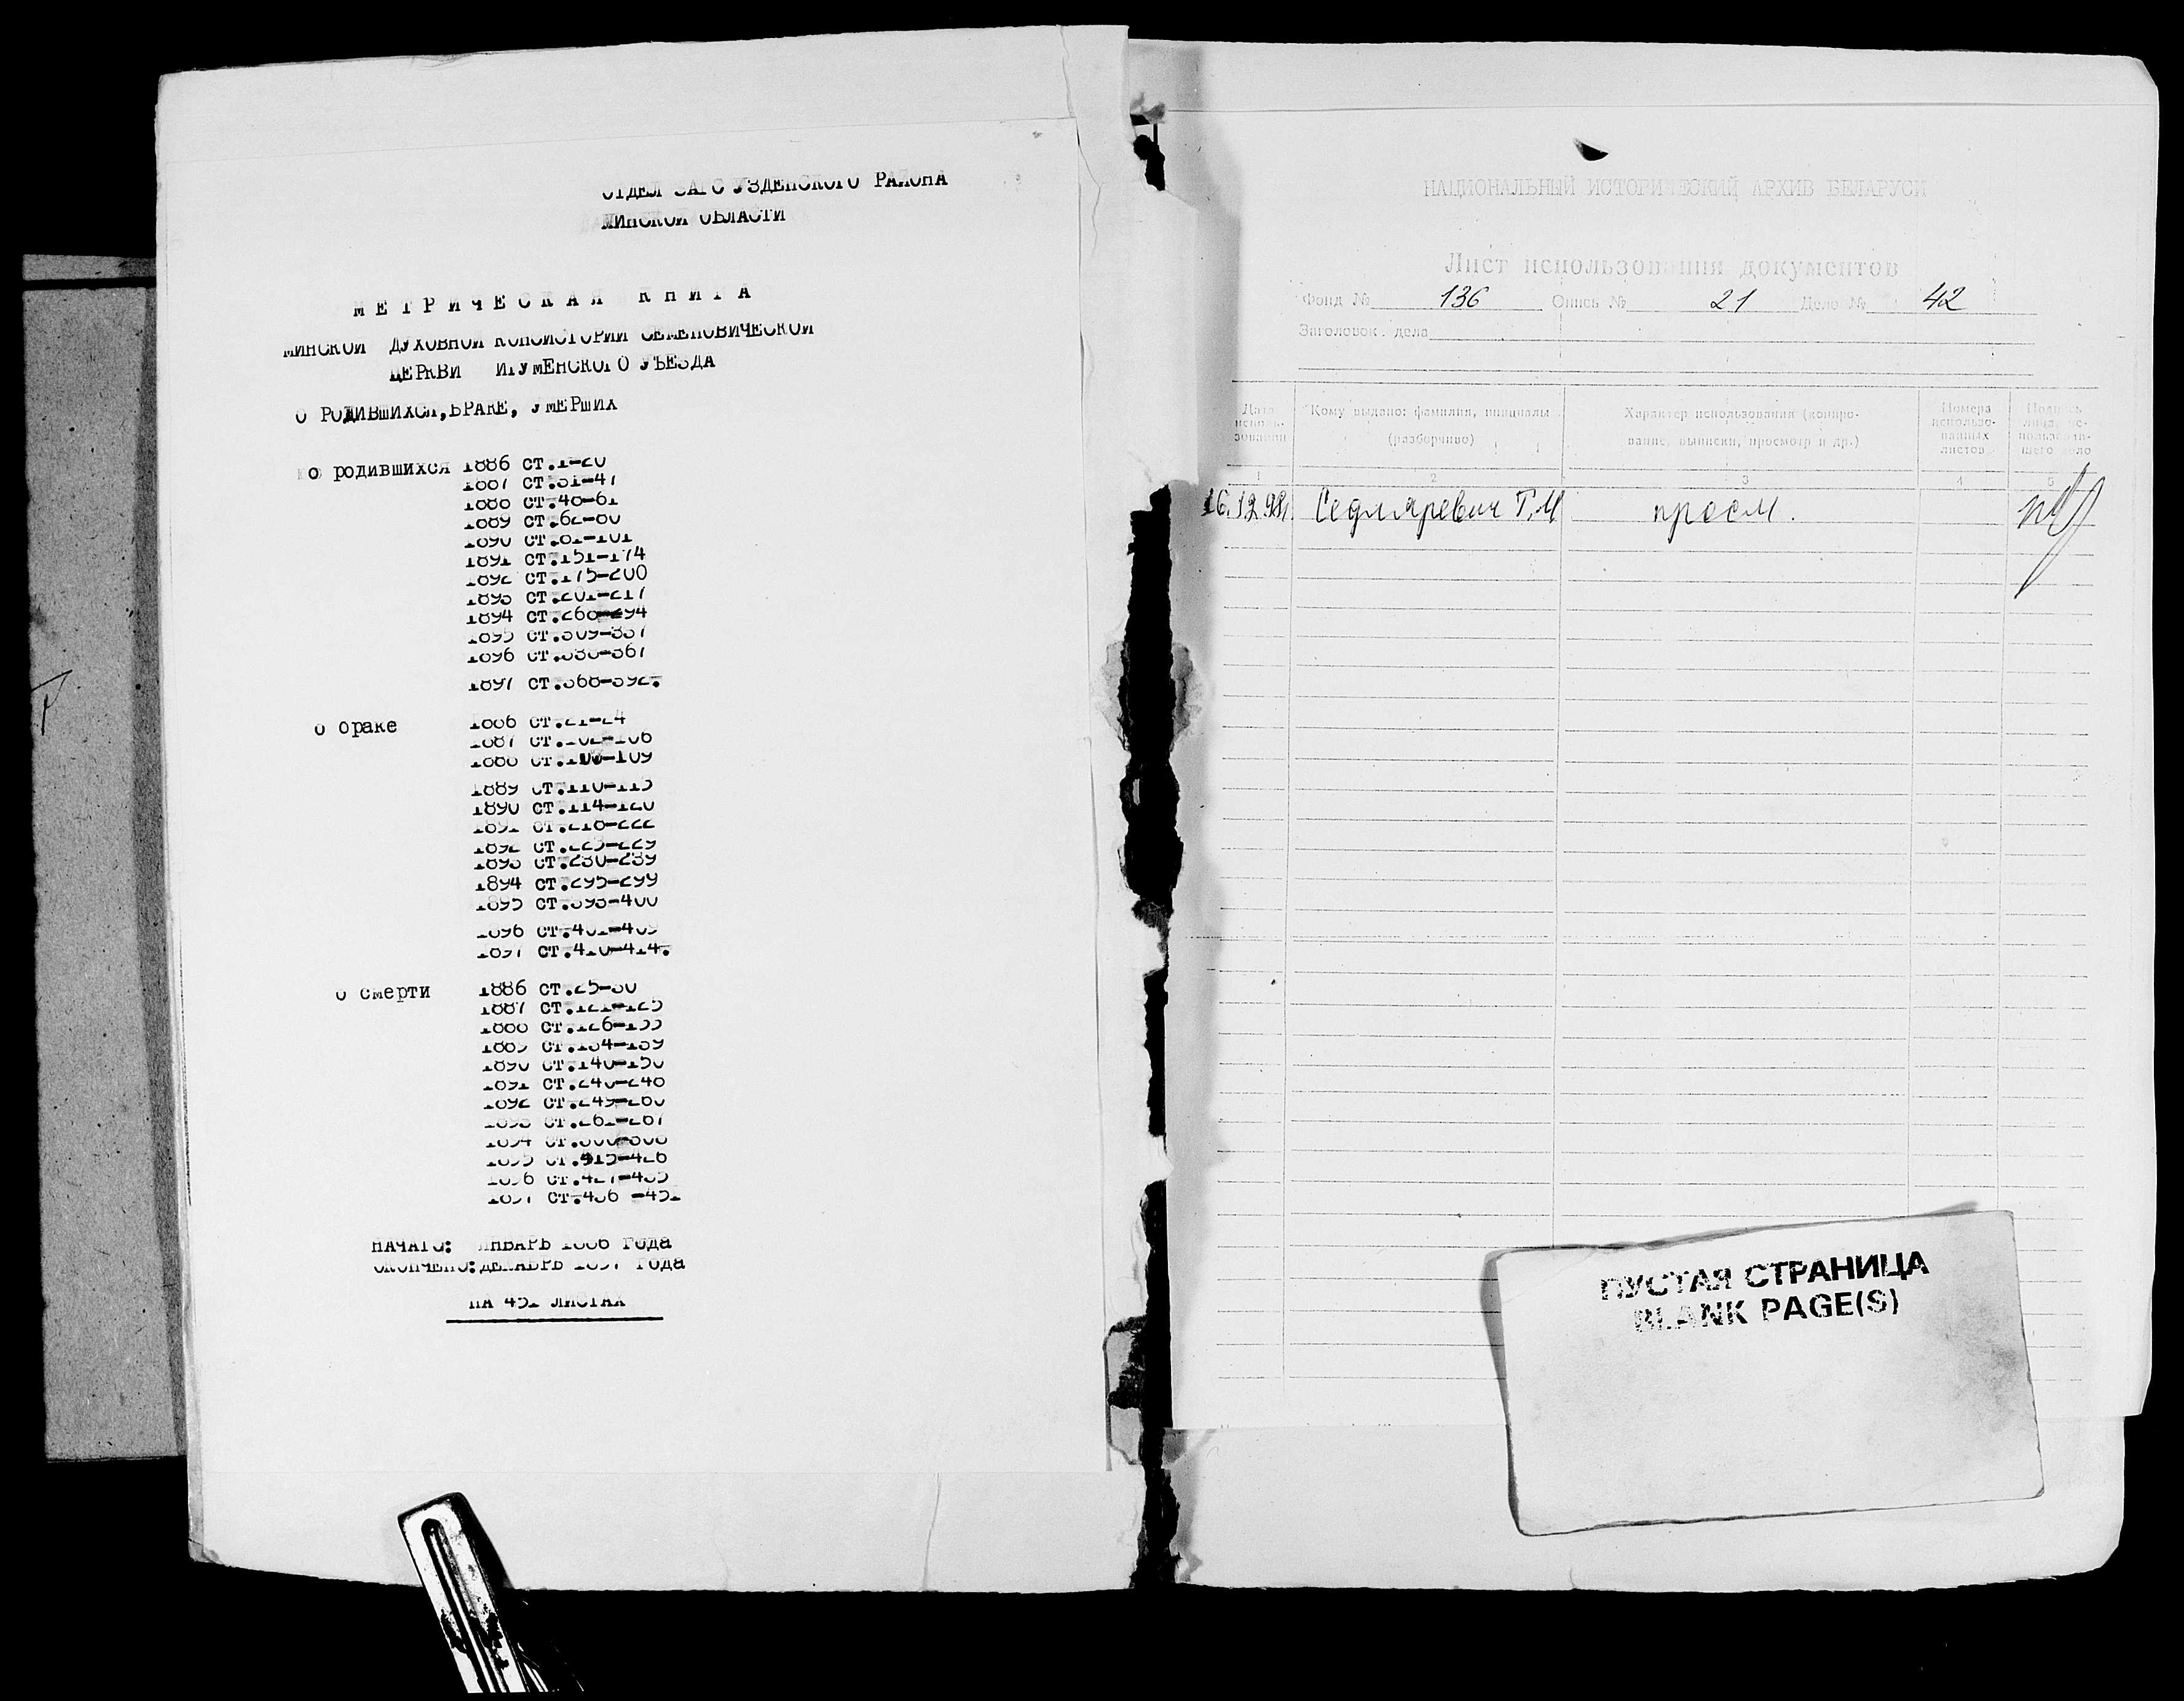 ОТДЕЛ ЗАГС УЗДЕНСКОГО РАЙОНА
МИНСКОЙ ОБЛАСТИ
МЕТРИЧЕСКАЯ КНИГА
МИНСКОЙ ДУХОВНОЙ КОНСИСТОРИИ СЕМЕНОВИЧЕСКОЙ
ЦЕРКВИ ИГУМЕНСКОГО УЪЕЗДА
О РОДИВШИХСЯ, БРАКЕ, УМЕРШИХ
о родившихся 1886 СТ.1-20
1887 СТ.31-47
1888 СТ.48-61
1889 СТ.62-80
1890 СТ.81-101
1891 СТ.151-174
1892 СТ.175-200
1893 СТ.201-217
1894 СТ.268-294
1895 СТ.309-337
1896 СТ.338-367
1897 СТ.368-392.
о браке 1886 СТ.21-24
1887 СТ.102-106
1888 СТ.107-109
1889 СТ.110-113
1890 СТ.114-120
1891 СТ.218-222
1892 СТ.223-229
1893 СТ.230-239
1894 СТ.295-299
1895 СТ.393-400
1896 СТ.401-409
1897 СТ.410-414.
о смерти 1886 СТ.25-30
1887 СТ.121-125
1888 СТ.126-133
1889 СТ.134-139
1890 СТ.140-150
1891 СТ.240-248
1892 СТ.249-260
1893 СТ.261-267
1894 СТ.300-308
1895 СТ.415-426
1896 СТ.427-435
1897 СТ.436 -451
НАЧАТО: ЯНВАРЬ 1886 года
ОКОНЧЕНО: ДЕКАБРЬ 1897 года
НА 451 ЛИСТАХ
НАЦИОНАЛЬНЫЙ ИСТОРИЧЕСКИЙ АРХИВ БЕЛАРУСИ
Лист использования документов
Фонд № 136 Опись № 21 Дело № 42
Заголовок дела
Дата исполь-зования
Кому выдано: фамилия, инициалы (разборчиво)
Характер использования (копиро-вание, выписки, просмотр и др.)
Номера использо-ванных листов
Подпись лица, ис-пользовав-шего дело
1 2 3 4 5
16.12.98. Седляревич Т.М просм.
ПУСТАЯ СТРАНИЦА
BLANK PAGE(S)